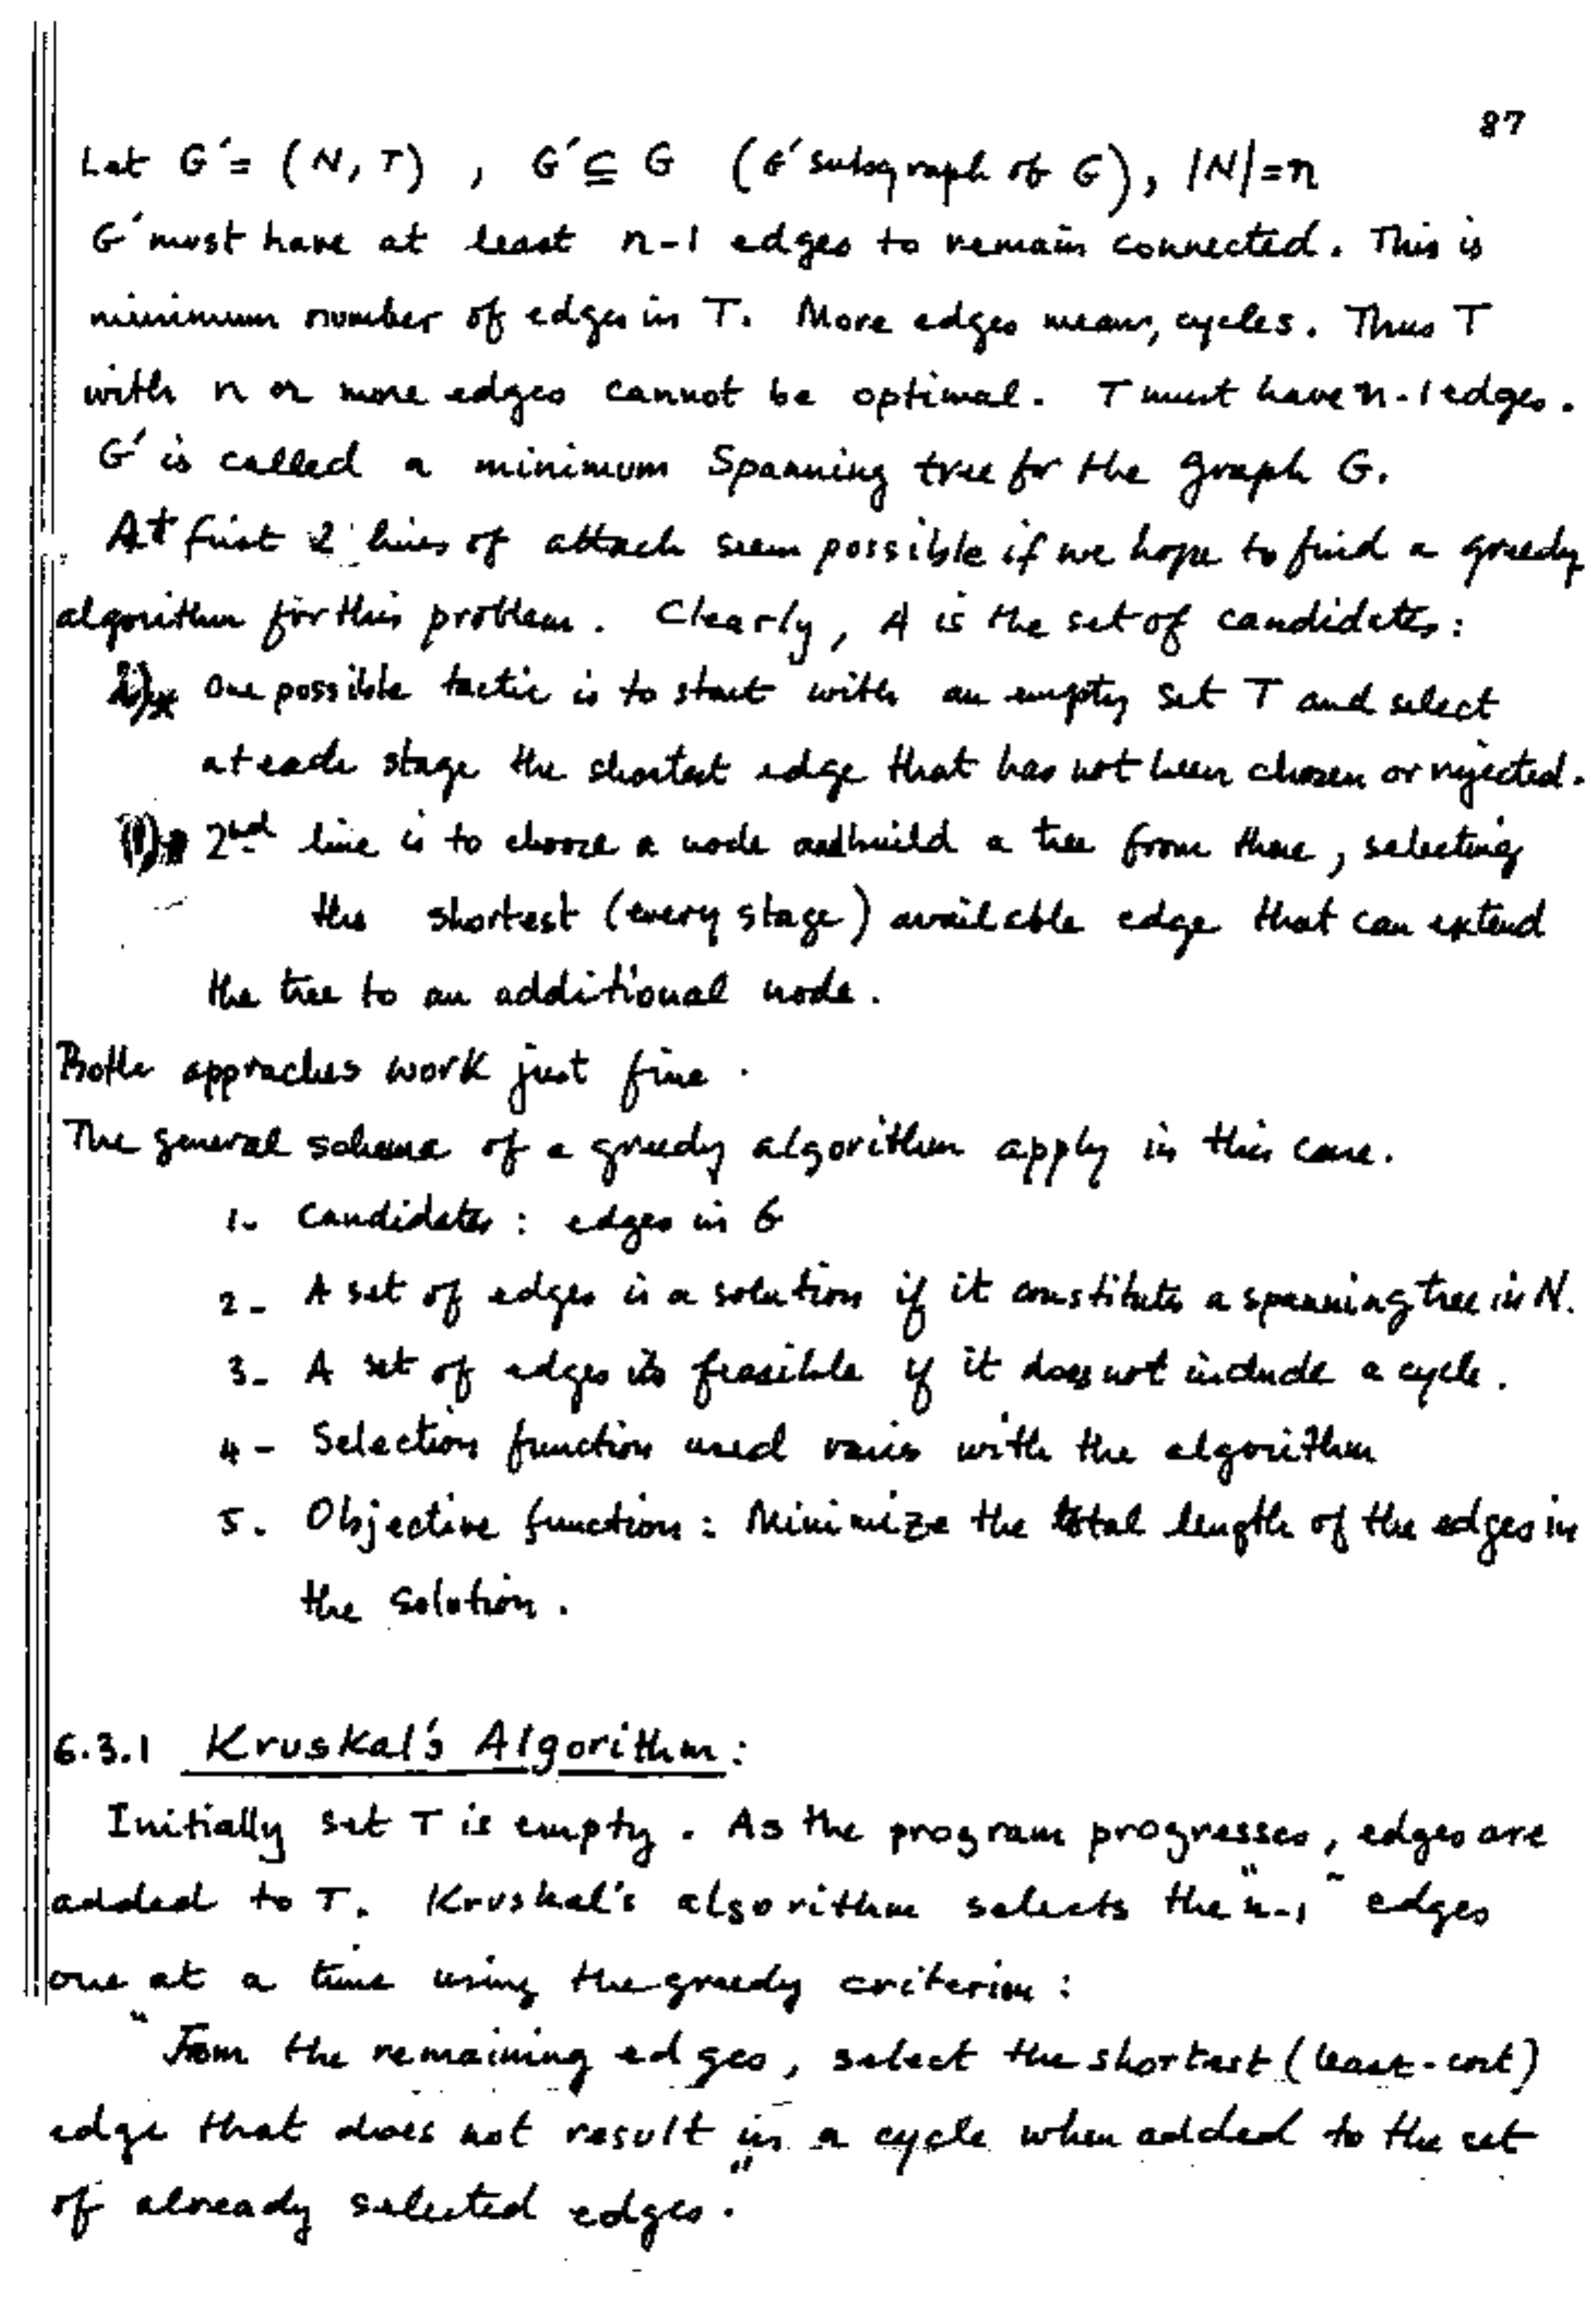 87
Let G′ = (N, T) , G′ ⊆ G (G′ subgraph of G), |N| = n
G′ must have at least n-1 edges to remain connected. This is
minimum number of edges in T. More edges means, cycles. Thus T
with n or more edges cannot be optimal. T must have n-1 edges.
G′ is called a minimum Spanning tree for the graph G.
At first 2 lines of attack seem possible if we hope to find a greedy
algorithm for this problem. Clearly, A is the set of candidates:
* One possible tactic is to start with an empty set T and select
at each stage the shortest edge that has not been chosen or rejected.
2nd line is to choose a node and build a tree from there, selecting
the shortest (every stage) available edge that can extend
the tree to an additional node.
Both appraches work just fine.
The general scheme of a greedy algorithm apply in this case.
1- Candidates : edges in G
2- A set of edges is a solution if it constitute a spanning tree in N.
3- A set of edges is feasible if it does not include a cycle.
4- Selection function used varies with the algorithm
5. Objective function : Minimize the total length of the edges in
the solution.
6.3.1 Kruskal's Algorithm:
Initially set T is empty. As the program progresses, edges are
added to T. Kruskal's algorithm selects the "n-1" edges
one at a time using the greedy criterion :
"From the remaining edges, select the shortest (least-cost)
edge that does not result in a cycle when added to the set
of already selected edges."